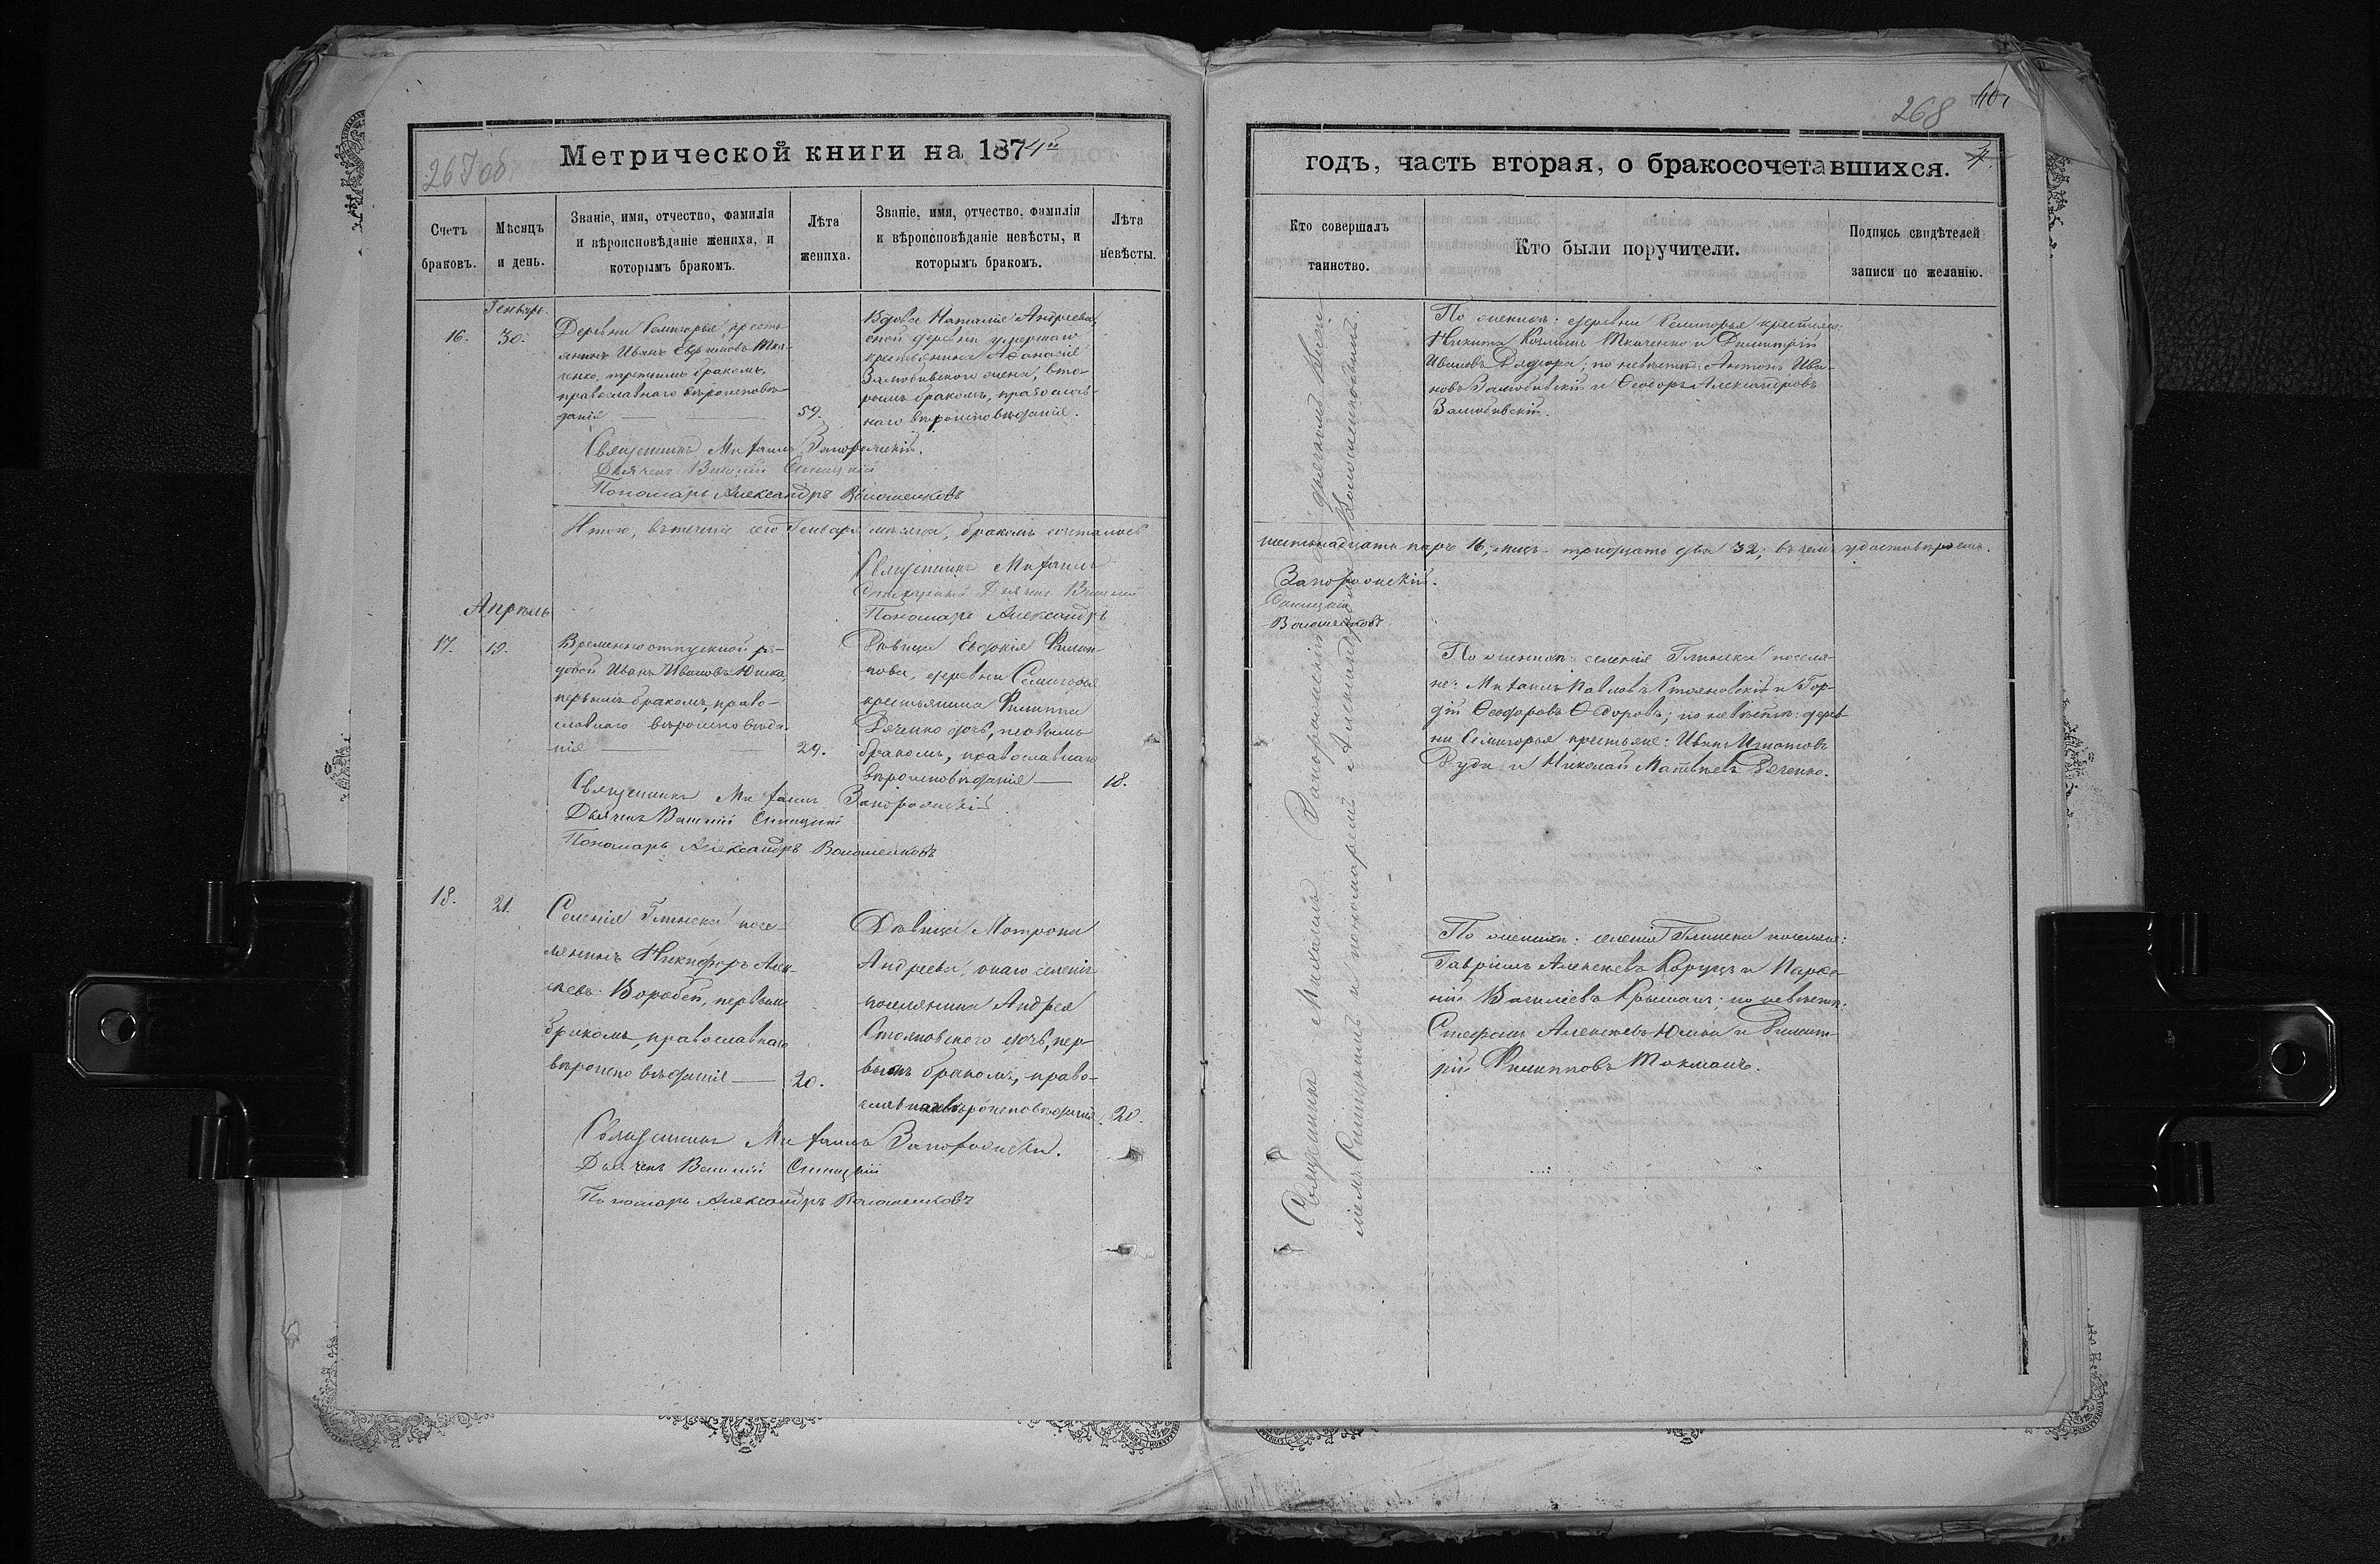 267 об.
Метрической книги на 1874й
Счетъ браковъ.
Мѣсяцъ и день.
Званіе, имя, отчество, фамилія
и вѣроисповѣданіе жениха, и
которымъ бракомъ.
Лѣта жениха.
Званіе, имя, отчество, фамилія
и вѣроисповѣданіе невѣсты, и
которымъ бракомъ.
Лѣта невѣсты.
Генварь.
16.
30.
Деревни Семигорья кресть-
янинъ Иванъ Тка-
ченко, третьимъ бракомъ,
православнаго вѣроисповѣ-
данія
59.
Вдова Наталія Андреева,
деревни умершаго
крестьянина Аѳанасія
жена, вто-
рымъ бракомъ, православ-
наго вѣроисповѣданія.
Священникъ Михаилъ Запорожскій.
Дьячекъ Василій Синицкій
Пономарь Александръ Волошенковъ
Итого, въ теченіе сего Генваря мѣсяца, бракомъ сочеталось
Священникъ Михаилъ
Дьячекъ Василій
Пономарь Александръ
Апрѣль
17.
19.
Временно отпускной ря-
довой Иванъ Ивановъ Юшка,
первымъ бракомъ, право-
славнаго вѣроисповѣда-
нія
29.
Дѣвица Евдокія Филип-
пова, деревни Семигорья
крестьянина Филиппа
Дяченко дочь, первымъ
бракомъ, православнаго
вѣроисповѣданія
18.
Священникъ Михаилъ Запорожскій.
Дьячекъ Василій Синицкій
Пономарь Александръ Волошенковъ
18.
21.
Селенія Глинска посе-
лянинъ Никифоръ Алек-
сѣевъ Воробей, первымъ
бракомъ, православнаго
вѣроисповѣданія
20.
Дѣвица Матрона
Андреева, онаго селенія
поселянина Андрея
Стояновского дочь, пер-
вымъ бракомъ, право-
славнаго вѣроисповѣданія
20.
Священникъ Михаилъ Запорожскій.
Дьячекъ Василій Синицкій
Пономарь Александръ Волошенковъ
268
годъ, часть вторая, о бракосочетавшихся.
Кто совершалъ таинство.
Кто были поручители.
Подпись свидѣтелей
записи по желанію.
Священникъ Михаилъ Запорожскій съ дьячкомъ
Синицкимъ и пономаремъ Александромъ Волошенковымъ.
По женихѣ: деревни Семигорья крестьяне:
Никита Ткаченко и Димитрій
Ивановъ; по невѣстѣ: Антонъ Ива-
новъ и Ѳеодоръ Александровъ
шестьнадцать паръ 16, лицъ тридцать два 32, въ чемъ удостовѣряемъ.
Запорожскій.
Синицкій
Волошенковъ
По женихѣ: селенія Глинска поселя-
не: Михаилъ Павловъ Стояновскій и Гор-
дій Ѳеодоровъ Ѳедоровъ; по невѣстѣ: дерев-
ни Семигорья крестьяне: Иванъ Игнатовъ
Руда и Николай Матвѣевъ Дяченко.
По женихѣ: селенія Глинска поселяне:
Гавріилъ Алексѣевъ Коруцъ и Парѳе-
ній Василіевъ; по невѣстѣ:
Стефанъ Алексѣевъ Юшка и Димит-
рій Филипповъ Токманъ.